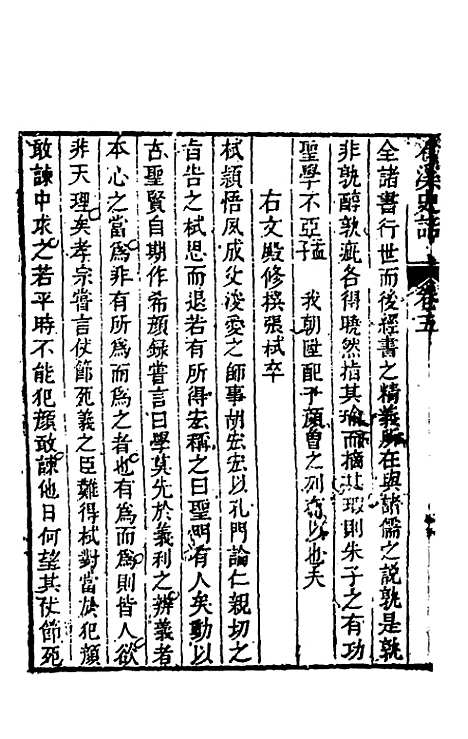 溪史話 卷五
全諸書行世而後經書之精義所在與諸儒之說孰是孰
非孰醇孰疵各得曉然指其瑜而摘其瑕則朱子之有功
聖學不亞孟 我朝世配予顏曾之列有以也夫
右文殿修撰張栻卒
栻穎悟夙成父浚愛之師事胡宏宏以孔門論仁親切之
旨告之栻思而退若有所得宏稱之曰聖門有人矣動以
古聖賢自期作希顏錄嘗言曰學莫先於義利之辨義者
本心之當為非有所為而為之者也有為而為則皆人欲
非天理矣孝宗嘗言仗節死義之臣難得栻對當於犯顏
敢諫中求之若平時不能犯顏敢諫他日何望其仗節死